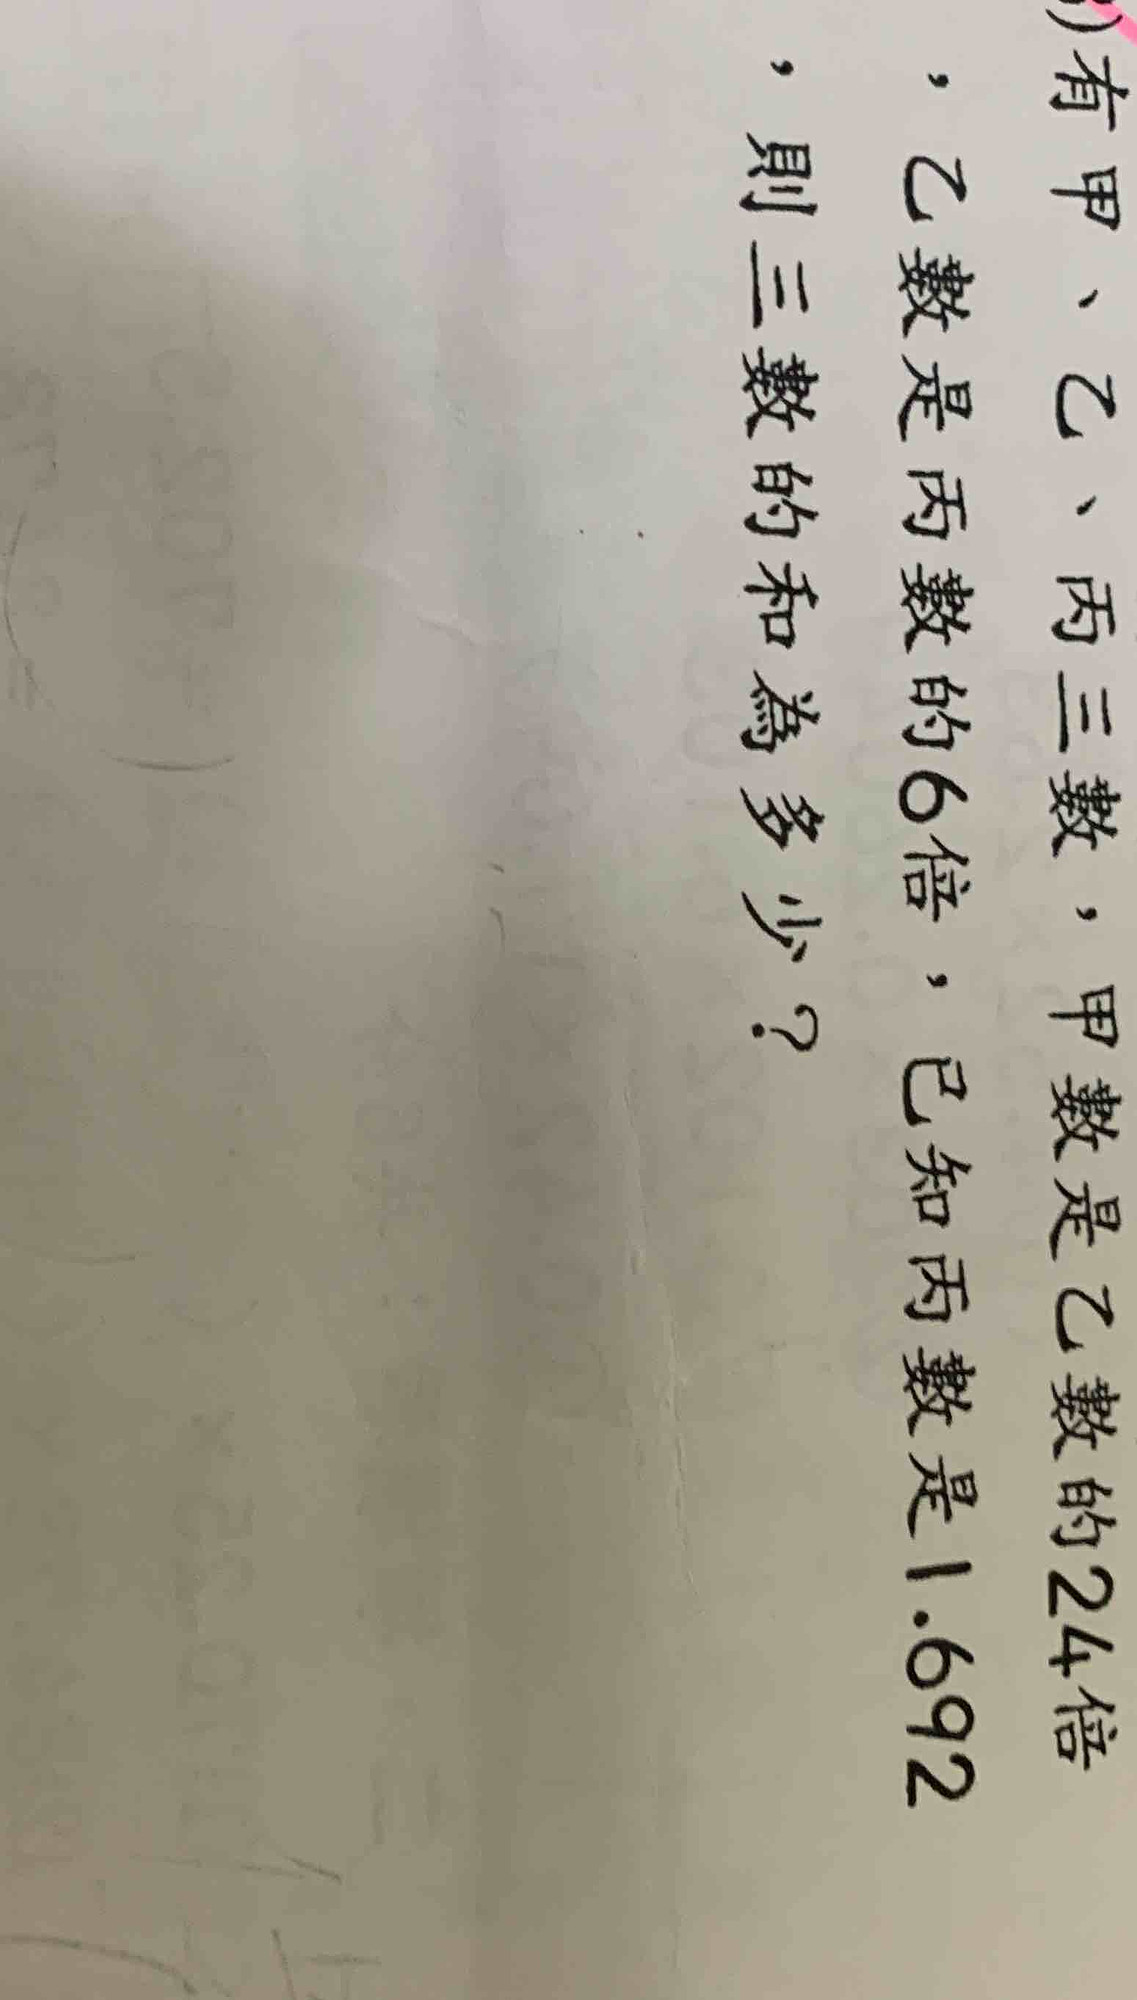 )有甲、乙、丙三數，甲數是乙數的24倍
，乙數是丙數的6倍，已知丙數是1.692
，則三數的和為多少？